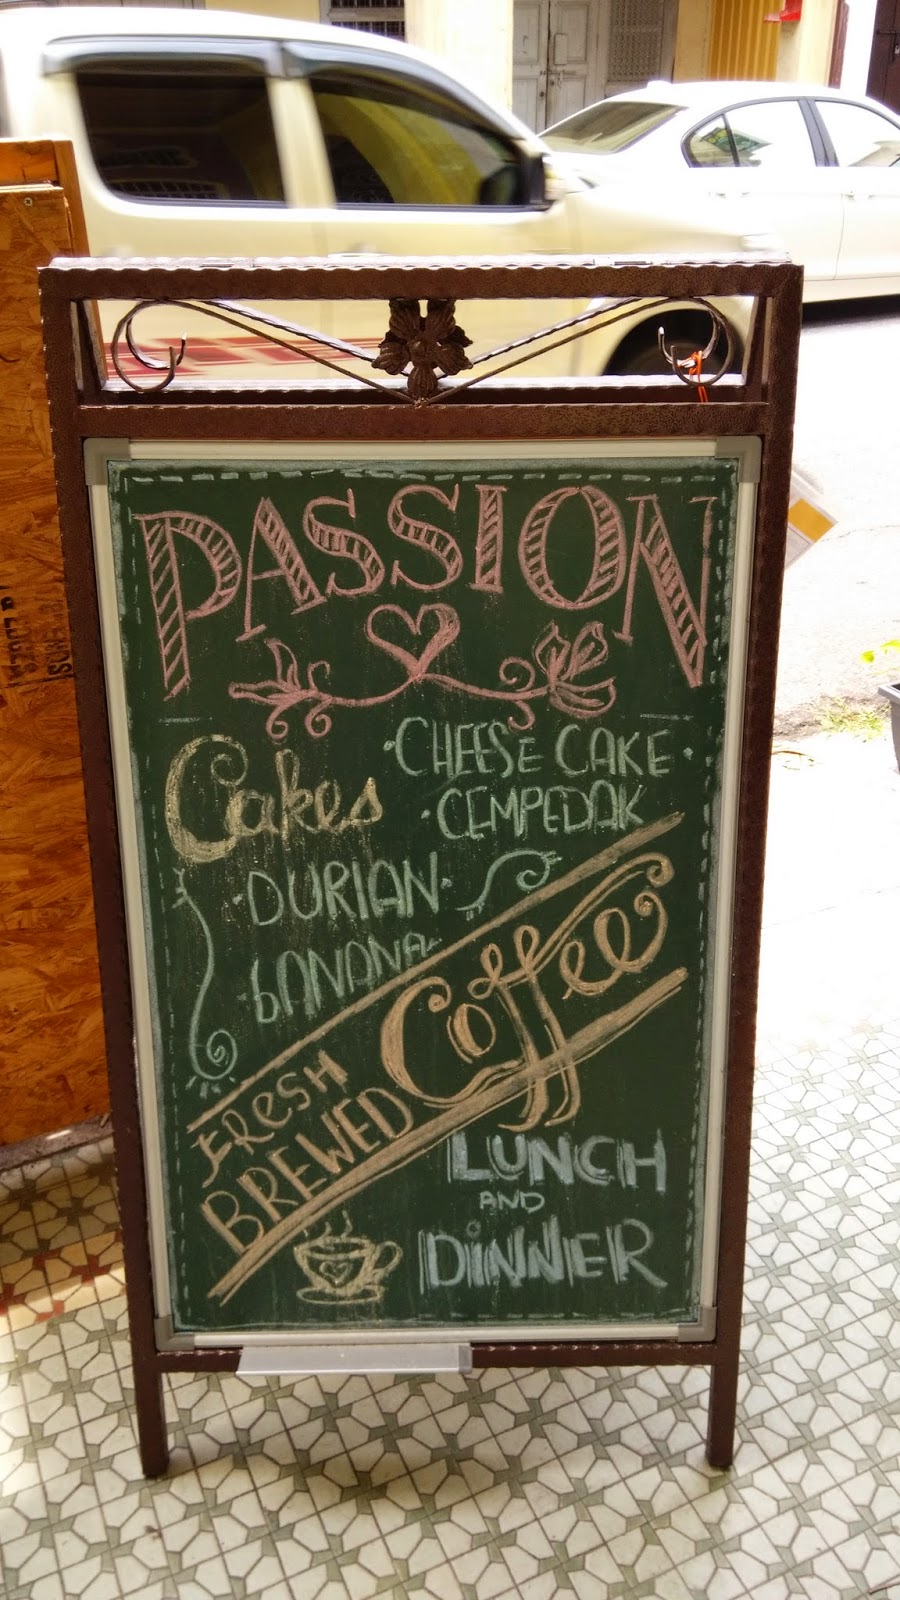 PASSION
Cakes
·CHEESE CAKE·
·CEMPEDAK
·DURIAN·
·bANANA
FRESH
BREWED
Coffee
LUNCH
AND
DINNER